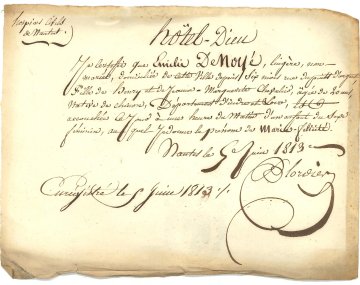 hospices civils
de Nantes
hôtel-Dieu
Je Certifie que Emilie DeMoyé, lingère, non
mariée, domiciliée de cette Ville depuis Six mois rue
fille de Henry et de Jeanne Marguerite Chapelié, agée de
Native de Chinon, Département d'indre et Loire,
accouchée ce Jour à une heure du Matin d'un enfant du Sexe
féminin, auquel J'ai donné le prénom de Marie-félicité
Nantes le 5 Juin 1813
Plordier
Enregistré le 5 Juin 1813